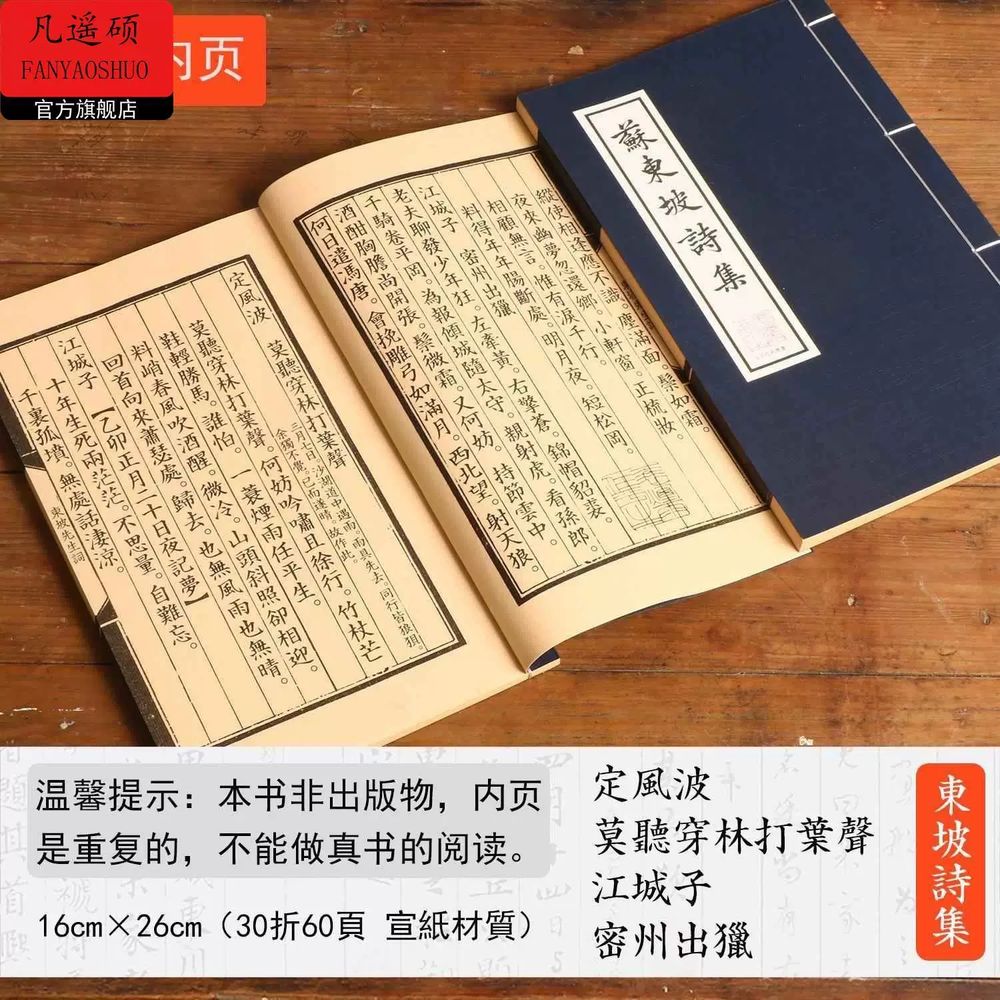 凡遥硕
FANYAOSHUO
官方旗舰店
内页
蘇東坡詩集
縱使相逢應不識。塵滿面。鬢如霜。
夜來幽夢忽還鄉。小軒窗。正梳妝。
相顧無言。惟有淚千行。
料得年年腸斷處。明月夜。短松岡。
江城子 密州出獵
老夫聊發少年狂。左牽黃。右擎蒼。錦帽貂裘。
千騎卷平岡。為報傾城隨太守。親射虎。看孫郎。
酒酣胸膽尚開張。鬢微霜。又何妨。持節雲中。
何日遣馮唐。會挽雕弓如滿月。西北望。射天狼。
定風波
莫聽穿林打葉聲
三月七日。沙湖道中遇雨。雨具先去。同行皆狼狽。
余獨不覺。已而遂晴。故作此。
莫聽穿林打葉聲。何妨吟嘯且徐行。竹杖芒
鞋輕勝馬。誰怕。一蓑煙雨任平生。
料峭春風吹酒醒。微冷。山頭斜照卻相迎。
回首向來蕭瑟處。歸去。也無風雨也無晴。
江城子【乙卯正月二十日夜記夢】
十年生死兩茫茫。不思量。自難忘。
千裏孤墳。無處話淒涼。
東坡先生詞
温馨提示：本书非出版物，内页
是重复的，不能做真书的阅读。
16cm×26cm（30折60頁 宣紙材質）
定風波
莫聽穿林打葉聲
江城子
密州出獵
東坡詩集